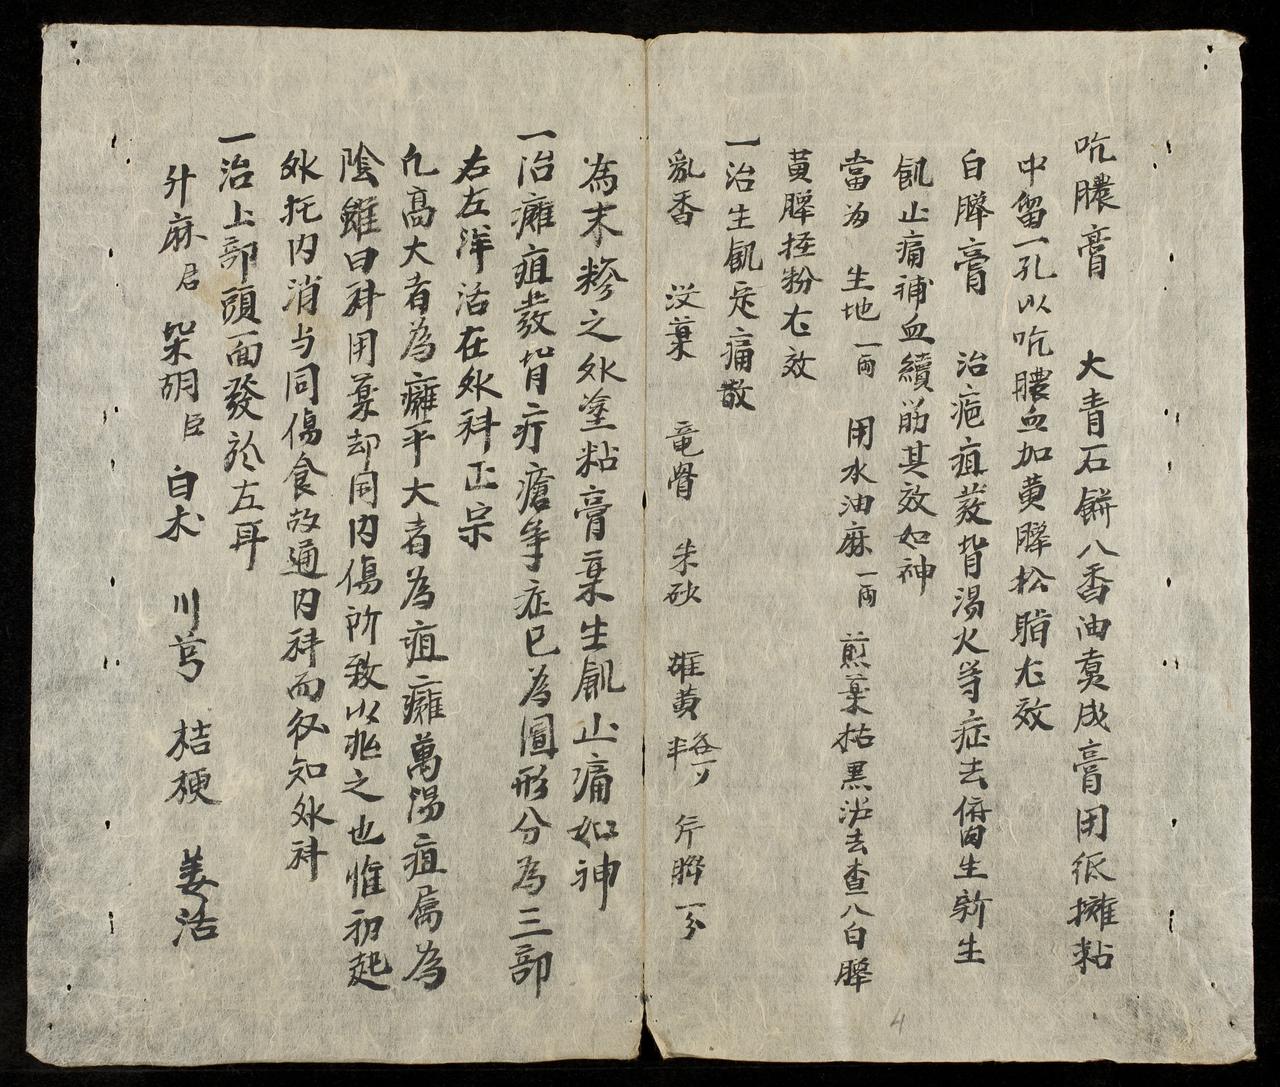 吮膿膏 大青石餅八香油煑成膏用紙攤粘
中留一孔以吮膿血加黄臎松脂尤效
白臎膏 治疤疽葵背湯火等症去腐肉生新生
飢止痛補血續筋其效如神
當為 生地一両 用水油麻一両 煎藥枯黒沙去查八白臎
黄臎挃粉尤效
一治生飢定痛散
乳香 没藥 竜骨 朱砂 雄黄各半 斤臎一分
為末糝之外塗粘膏藥生飢止痛如神
一治癰疽發背疔瘡等症已為圖形分為三部
右左洋活在外科正宗
凢高大者為癰平大者為疽癰萬陽疽属為
陰雖曰科用藥却同内傷所致以兆之也惟初起
外托内消与同傷食故通内科而後知外科
一治上部頭面發於左耳
升麻君 柴胡臣 白术 川芎 桔梗 姜活
4